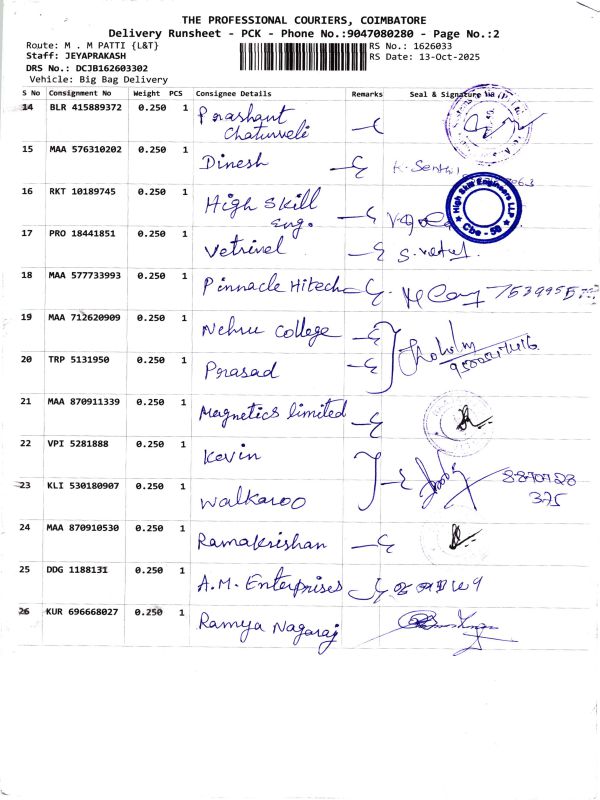 THE PROFESSIONAL COURIERS, COIMBATORE
Delivery Runsheet - PCK - Phone No.:9047080280 - Page No.:2
Route: M . M PATTI {L&T}
RS No.: 1626033
Staff: JEYAPRAKASH
RS Date: 13-Oct-2025
DRS No.: DCJB162603302
Vehicle: Big Bag Delivery
S No Consignment No Weight PCS Consignee Details Remarks Seal & Signature
14 BLR 415889372 0.250 1 Prashant
Chaturveli
15 MAA 576310202 0.250 1 Dinesh K. Senthil
16 RKT 10189745 0.250 1 High Skill
Eng.
High Skill Engineers LLP
Cbe - 50
17 PRO 18441851 0.250 1 Vetrivel
18 MAA 577733993 0.250 1 Pinnacle Hitech
19 MAA 712620909 0.250 1 Nehru College
20 TRP 5131950 0.250 1 Prasad
21 MAA 870911339 0.250 1 Magnetics limited
22 VPI 5281888 0.250 1 Kevin
23 KLI 530180907 0.250 1 Walkaroo
8870728
375
24 MAA 870910530 0.250 1 Ramakrishan
25 DDG 1188131 0.250 1 A.M. Enterprises
26 KUR 696668027 0.250 1 Ramya Nagaraj